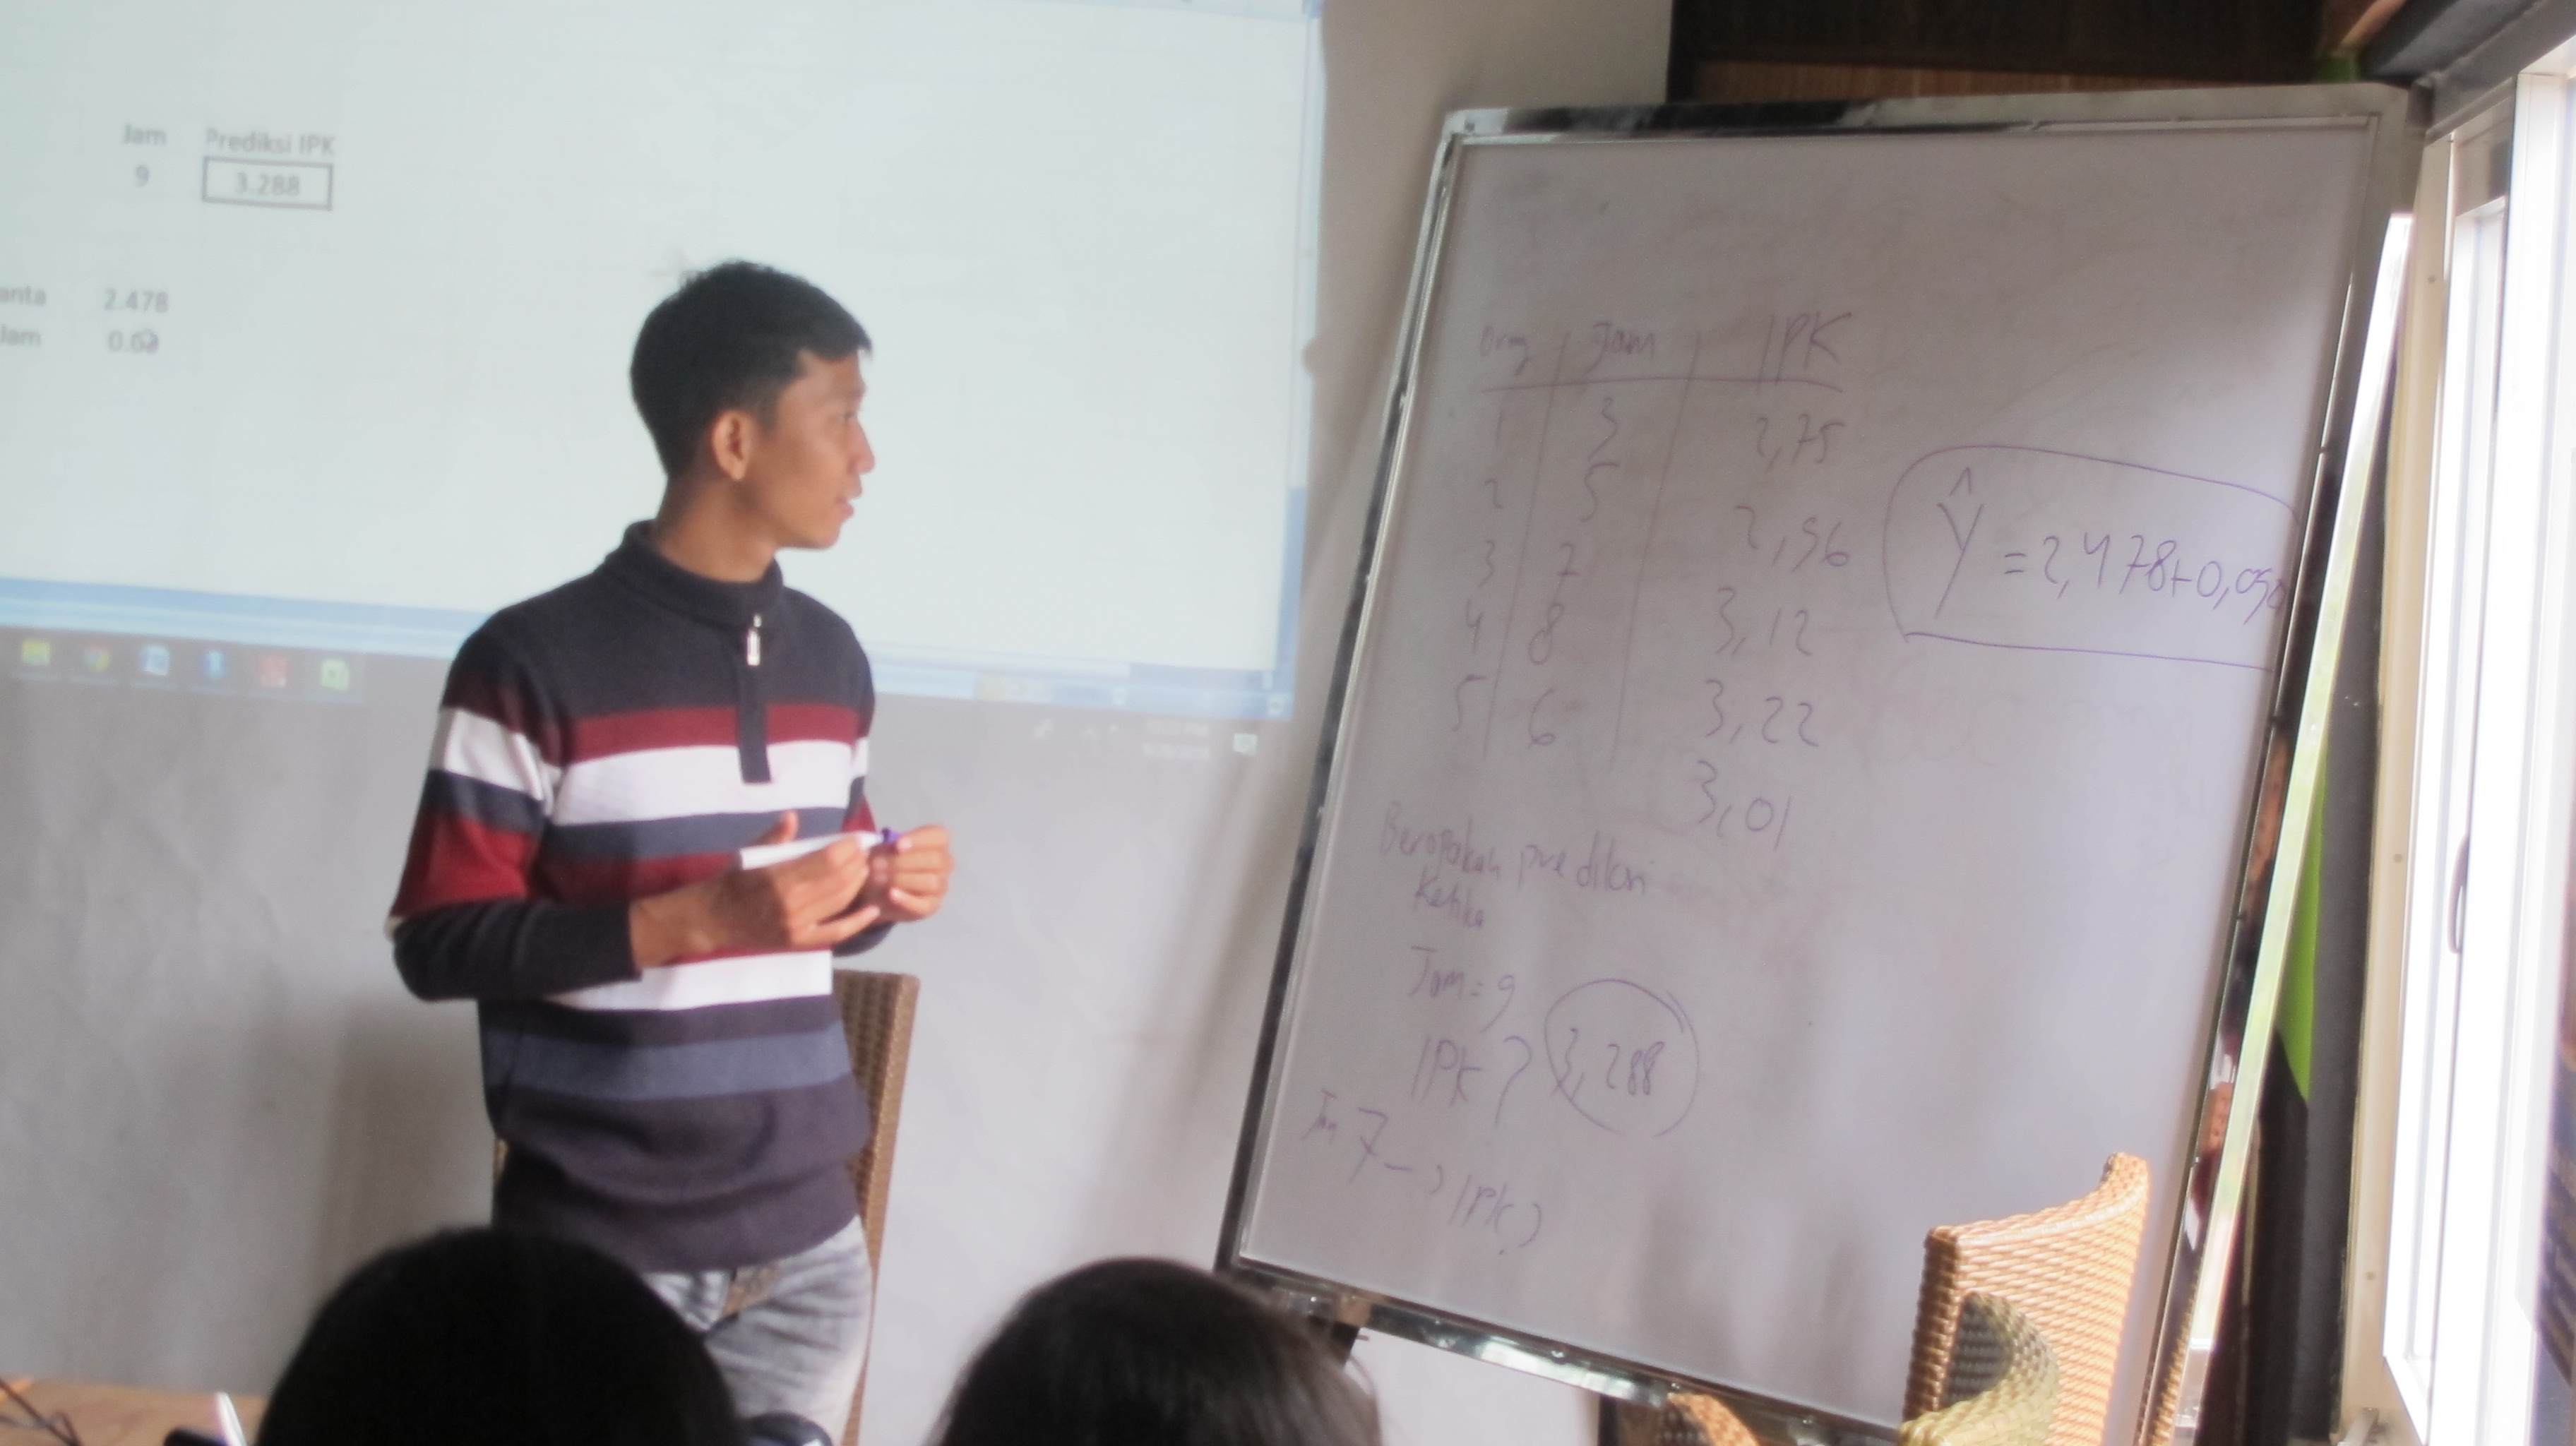 Jam Prediksi IPK
9 3.288
anta 2.478
Jam 0.09
Orang Jam IPK
1 3 2,75
2 5 2,96
3 7 3,12
4 8 3,22
5 6 3,01
Ŷ = 2,478+0,090
Berapakah prediksi
Ketika
Jam = 9
IPK? 3,288
Jam 7 → IPK?